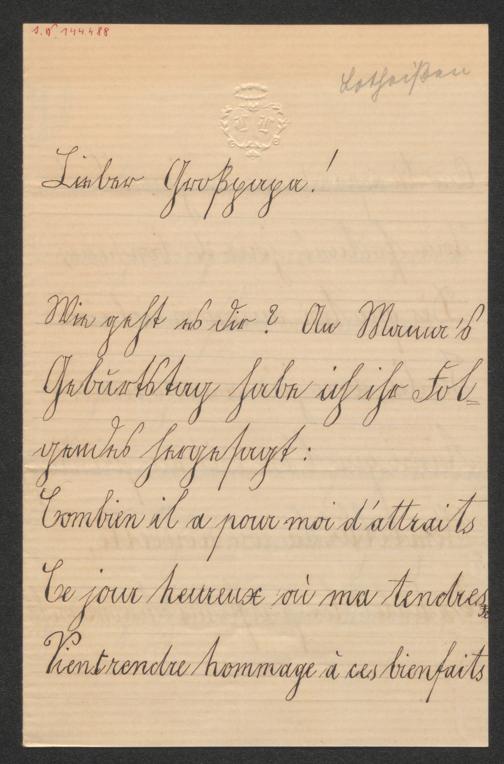 I. N. 144.488
Lotheißen
Lieber Großpapa!
Wie geht es dir? An Mama's
Geburtstag habe ich ihr Fol-
gendes hergesagt:
Combien il a pour moi d'attraits
Ce jour heureux où ma tendresse
Vient rendre hommage à ces bienfaits